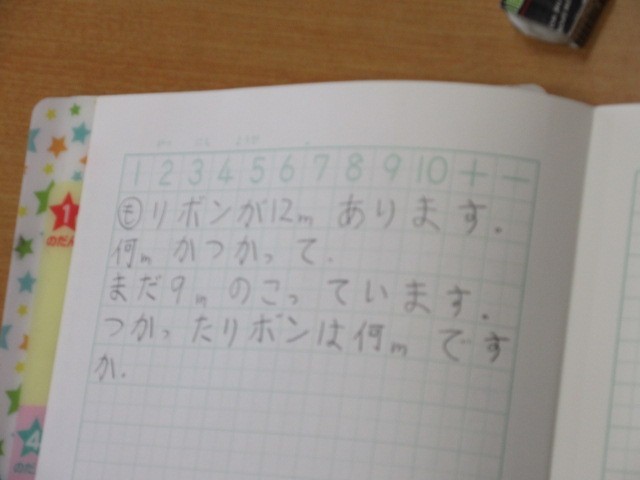 1 2 3 4 5 6 7 8 9 10 + −
も リボンが12m あります.
何m かつかって.
まだ9m のこっています.
つかったリボンは何m です
か.
1
のだん
4
のだ